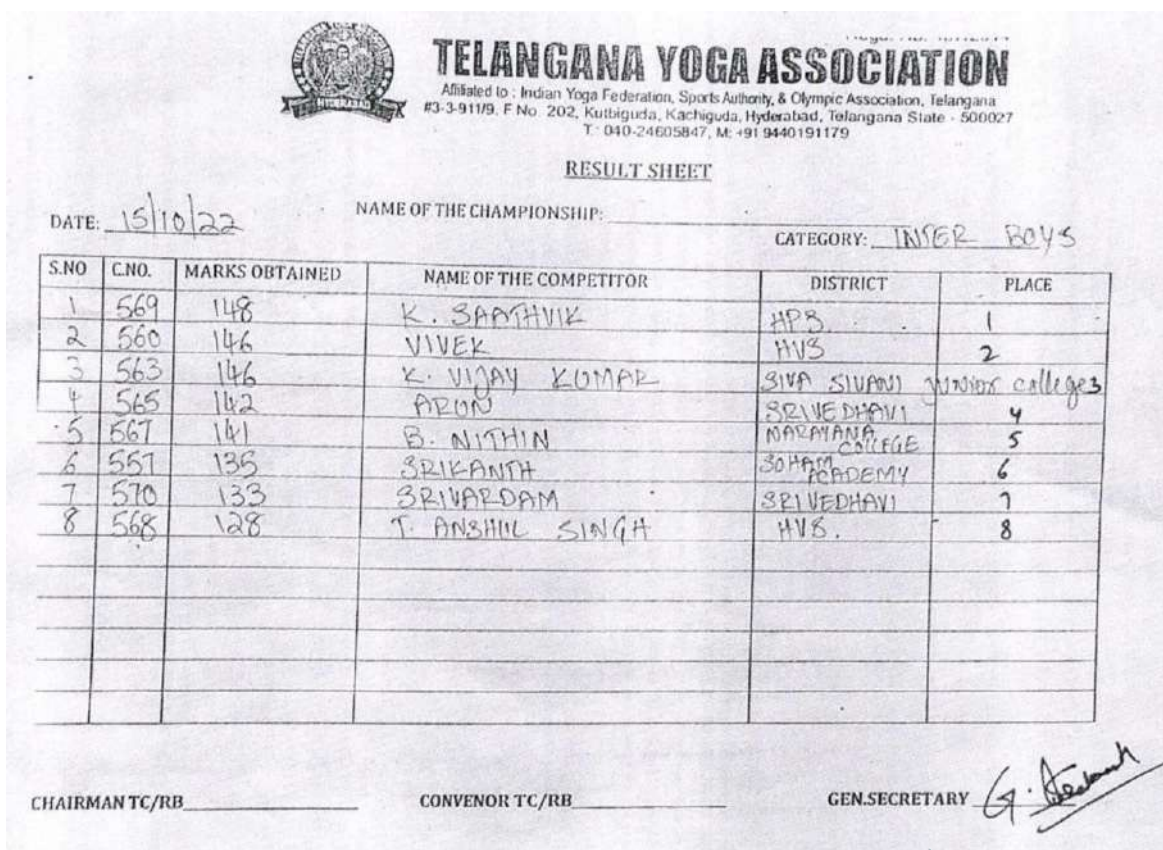 HYDERABAD
TELANGANA YOGA ASSOCIATION
Affiliated to : Indian Yoga Federation, Sports Authority, & Olympic Association, Telangana
#3-3-911/9, F No. 202, Kutbiguda, Kachiguda, Hyderabad, Telangana State - 500027
T : 040-24605847, M: +91 9440191179
RESULT SHEET
DATE: 15/10/22 NAME OF THE CHAMPIONSHIP:
CATEGORY: INTER BOYS
S.NO C.NO. MARKS OBTAINED NAME OF THE COMPETITOR DISTRICT PLACE
1 569 148 K. SAATHVIK HPS. 1
2 560 146 VIVEK HVS 2
3 563 146 K. VIJAY KUMAR SIVA SIVANI junior colleges
4 565 142 ARUN SRIVEDHAVI 4
5 567 141 B. NITHIN NARAYANA COLLEGE 5
6 557 135 SRIKANTH SOHAM ACADEMY 6
7 570 133 SRIVARDAM SRIVEDHAVI 7
8 568 128 T. ANSHUL SINGH HVS. 8
CHAIRMAN TC/RB CONVENOR TC/RB GEN.SECRETARY G.